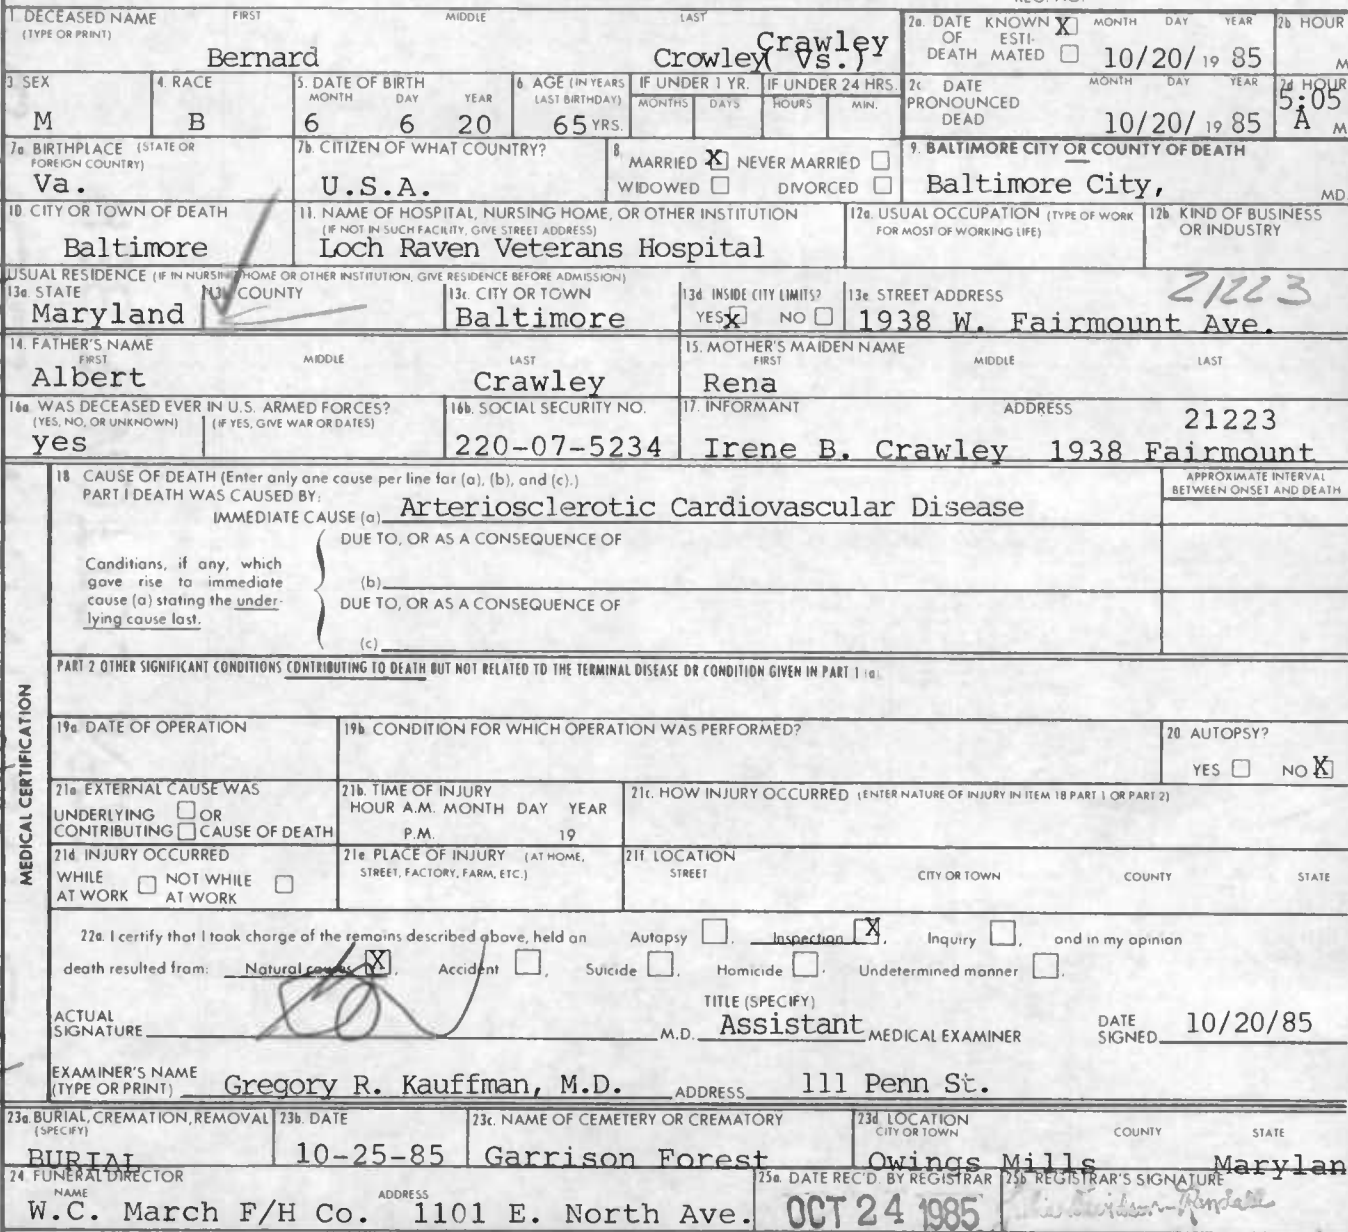 1 DECEASED NAME FIRST MIDDLE LAST
(TYPE OR PRINT)
Bernard Crowley (Vs.) Crawley
2a. DATE OF DEATH KNOWN X ESTIMATED MONTH DAY YEAR
10/20/ 19 85
2b HOUR
M
3. SEX
M
4. RACE
B
5. DATE OF BIRTH
MONTH DAY YEAR
6 6 20
6 AGE (IN YEARS LAST BIRTHDAY)
65 YRS.
IF UNDER 1 YR. IF UNDER 24 HRS.
MONTHS DAYS HOURS MIN.
2c DATE PRONOUNCED DEAD MONTH DAY YEAR
10/20/ 19 85
2d HOUR
5:05
A M
7a BIRTHPLACE (STATE OR FOREIGN COUNTRY)
Va.
7b. CITIZEN OF WHAT COUNTRY?
U.S.A.
8. MARRIED X NEVER MARRIED
WIDOWED DIVORCED
9. BALTIMORE CITY OR COUNTY OF DEATH
Baltimore City, MD.
10. CITY OR TOWN OF DEATH
Baltimore
11. NAME OF HOSPITAL, NURSING HOME, OR OTHER INSTITUTION
(IF NOT IN SUCH FACILITY, GIVE STREET ADDRESS)
Loch Raven Veterans Hospital
12a. USUAL OCCUPATION (TYPE OF WORK FOR MOST OF WORKING LIFE)
12b. KIND OF BUSINESS OR INDUSTRY
USUAL RESIDENCE (IF IN NURSING HOME OR OTHER INSTITUTION, GIVE RESIDENCE BEFORE ADMISSION)
13a. STATE
Maryland
COUNTY
13c. CITY OR TOWN
Baltimore
13d. INSIDE CITY LIMITS?
YES X NO
13e STREET ADDRESS 21223
1938 W. Fairmount Ave.
14. FATHER'S NAME
FIRST MIDDLE LAST
Albert Crawley
15. MOTHER'S MAIDEN NAME
FIRST MIDDLE LAST
Rena
16a. WAS DECEASED EVER IN U.S. ARMED FORCES?
(YES, NO, OR UNKNOWN) (IF YES, GIVE WAR OR DATES)
yes
16b. SOCIAL SECURITY NO.
220-07-5234
17. INFORMANT ADDRESS
21223
Irene B. Crawley 1938 Fairmount
MEDICAL CERTIFICATION
18 CAUSE OF DEATH (Enter only one cause per line for (a), (b), and (c).)
PART I DEATH WAS CAUSED BY:
IMMEDIATE CAUSE (a) Arteriosclerotic Cardiovascular Disease
APPROXIMATE INTERVAL BETWEEN ONSET AND DEATH
DUE TO, OR AS A CONSEQUENCE OF
Conditions, if any, which
gave rise to immediate
cause (a) stating the under-
lying cause last.
(b)
DUE TO, OR AS A CONSEQUENCE OF
(c)
PART 2 OTHER SIGNIFICANT CONDITIONS CONTRIBUTING TO DEATH BUT NOT RELATED TO THE TERMINAL DISEASE OR CONDITION GIVEN IN PART 1 (a)
19a DATE OF OPERATION
19b CONDITION FOR WHICH OPERATION WAS PERFORMED?
20. AUTOPSY?
YES NO X
21a EXTERNAL CAUSE WAS
UNDERLYING OR
CONTRIBUTING CAUSE OF DEATH
21b. TIME OF INJURY
HOUR A.M. MONTH DAY YEAR
P.M. 19
21c. HOW INJURY OCCURRED (ENTER NATURE OF INJURY IN ITEM 18 PART 1 OR PART 2)
21d INJURY OCCURRED
WHILE AT WORK NOT WHILE AT WORK
21e PLACE OF INJURY (AT HOME, STREET, FACTORY, FARM, ETC.)
21f LOCATION
STREET CITY OR TOWN COUNTY STATE
22a. I certify that I took charge of the remains described above, held an Autopsy , Inspection X, Inquiry , and in my opinion
death resulted from: Natural causes X, Accident , Suicide , Homicide , Undetermined manner .
ACTUAL SIGNATURE M.D.
TITLE (SPECIFY)
Assistant MEDICAL EXAMINER
DATE SIGNED 10/20/85
EXAMINER'S NAME
(TYPE OR PRINT) Gregory R. Kauffman, M.D. ADDRESS 111 Penn St.
23a. BURIAL, CREMATION, REMOVAL
(SPECIFY)
BURIAL
23b. DATE
10-25-85
23c. NAME OF CEMETERY OR CREMATORY
Garrison Forest
23d LOCATION
CITY OR TOWN COUNTY STATE
Owings Mills Marylan
24 FUNERAL DIRECTOR
NAME ADDRESS
W.C. March F/H Co. 1101 E. North Ave.
25a. DATE REC'D. BY REGISTRAR
OCT 24 1985
25b REGISTRAR'S SIGNATURE
Davidson-Randall